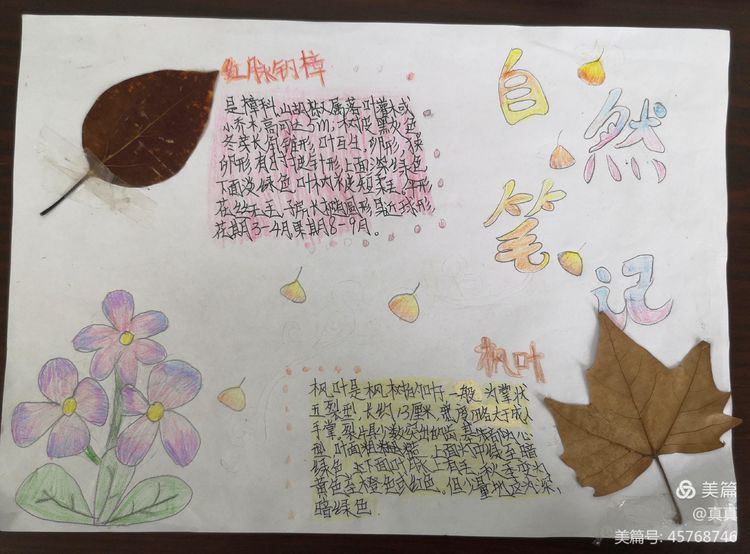 红脉钓樟
是樟科山胡椒属落叶灌木或
小乔木,高可达5m;树皮黑灰色
冬芽长角锥形,叶互生,卵形,狭
卵形,有时披针形上面深绿色
下面淡绿色,叶柄被短柔毛,伞形
花丝无毛,子房长椭圆形果近球形
花期3-4月果期8-9月。
自然
笔记
枫叶
枫叶是枫树的叶子,一般为掌状
五裂型,长约13厘米,宽度略大于成人
手掌,裂片具少数突出的齿,基部为心
面,叶面粗糙,上面为中绿至暗
绿色,下面叶脉上有毛,秋季变为
黄色至橙色或红色。但少量地区为深、
暗绿色
美篇
@真真
美篇号: 45768746